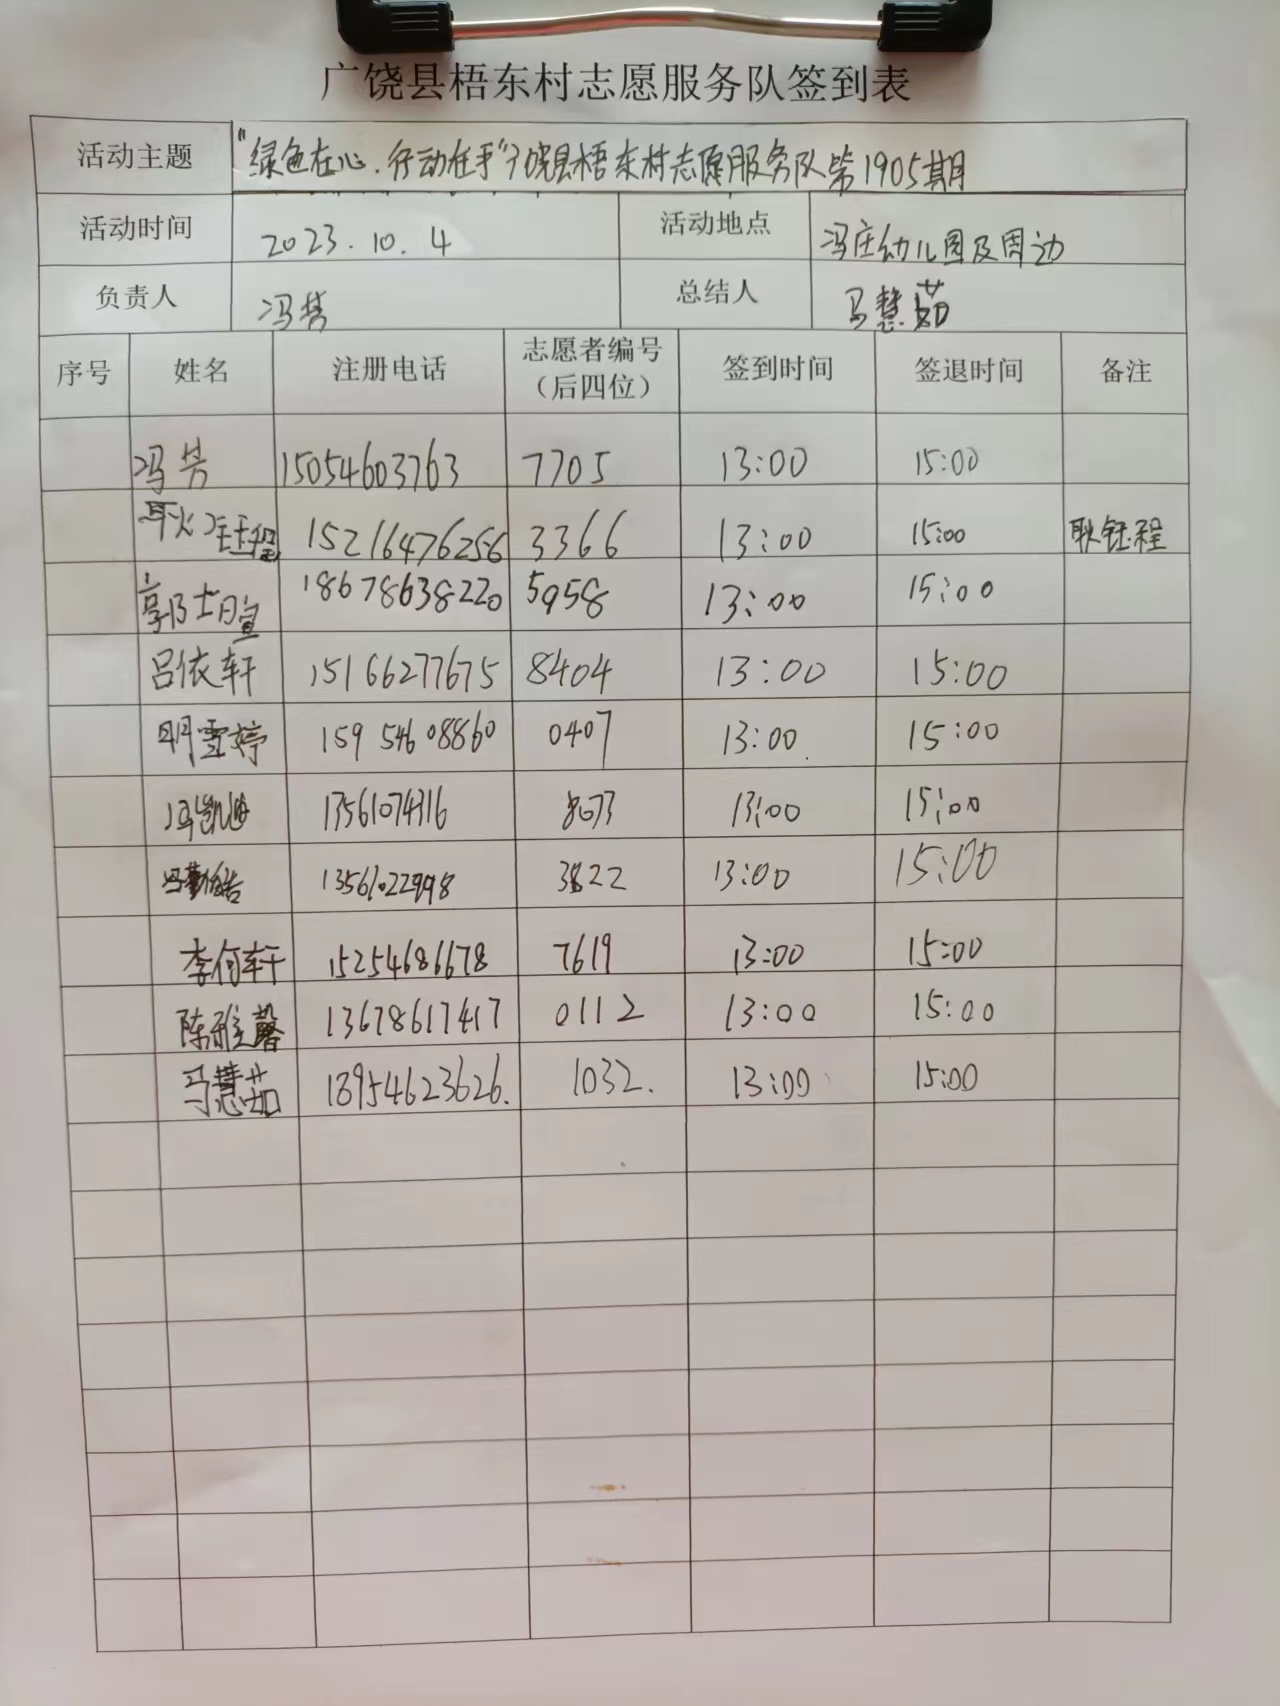 广饶县梧东村志愿服务队签到表
活动主题 "绿色在心.行动在手"广饶县梧东村志愿服务队第1905期
活动时间 2023.10.4 活动地点 冯庄幼儿园及周边
负责人 冯芳 总结人 马慧茹
序号 姓名 注册电话 志愿者编号（后四位） 签到时间 签退时间 备注
冯芳 15054603763 7705 13:00 15:00
耿钰程 15216476256 3366 13:00 15:00 耿钰程
郭士暄 18678638220 5958 13:00 15:00
吕依轩 15166277675 8404 13:00 15:00
明雪婷 15954608860 0407 13:00 15:00
冯凯迪 13561074316 8073 13:00 15:00
13561022998 3822 13:00 15:00
李何轩 15254686678 7619 13:00 15:00
陈雅馨 13678617417 0112 13:00 15:00
马慧茹 18954623626. 1032. 13:00 15:00